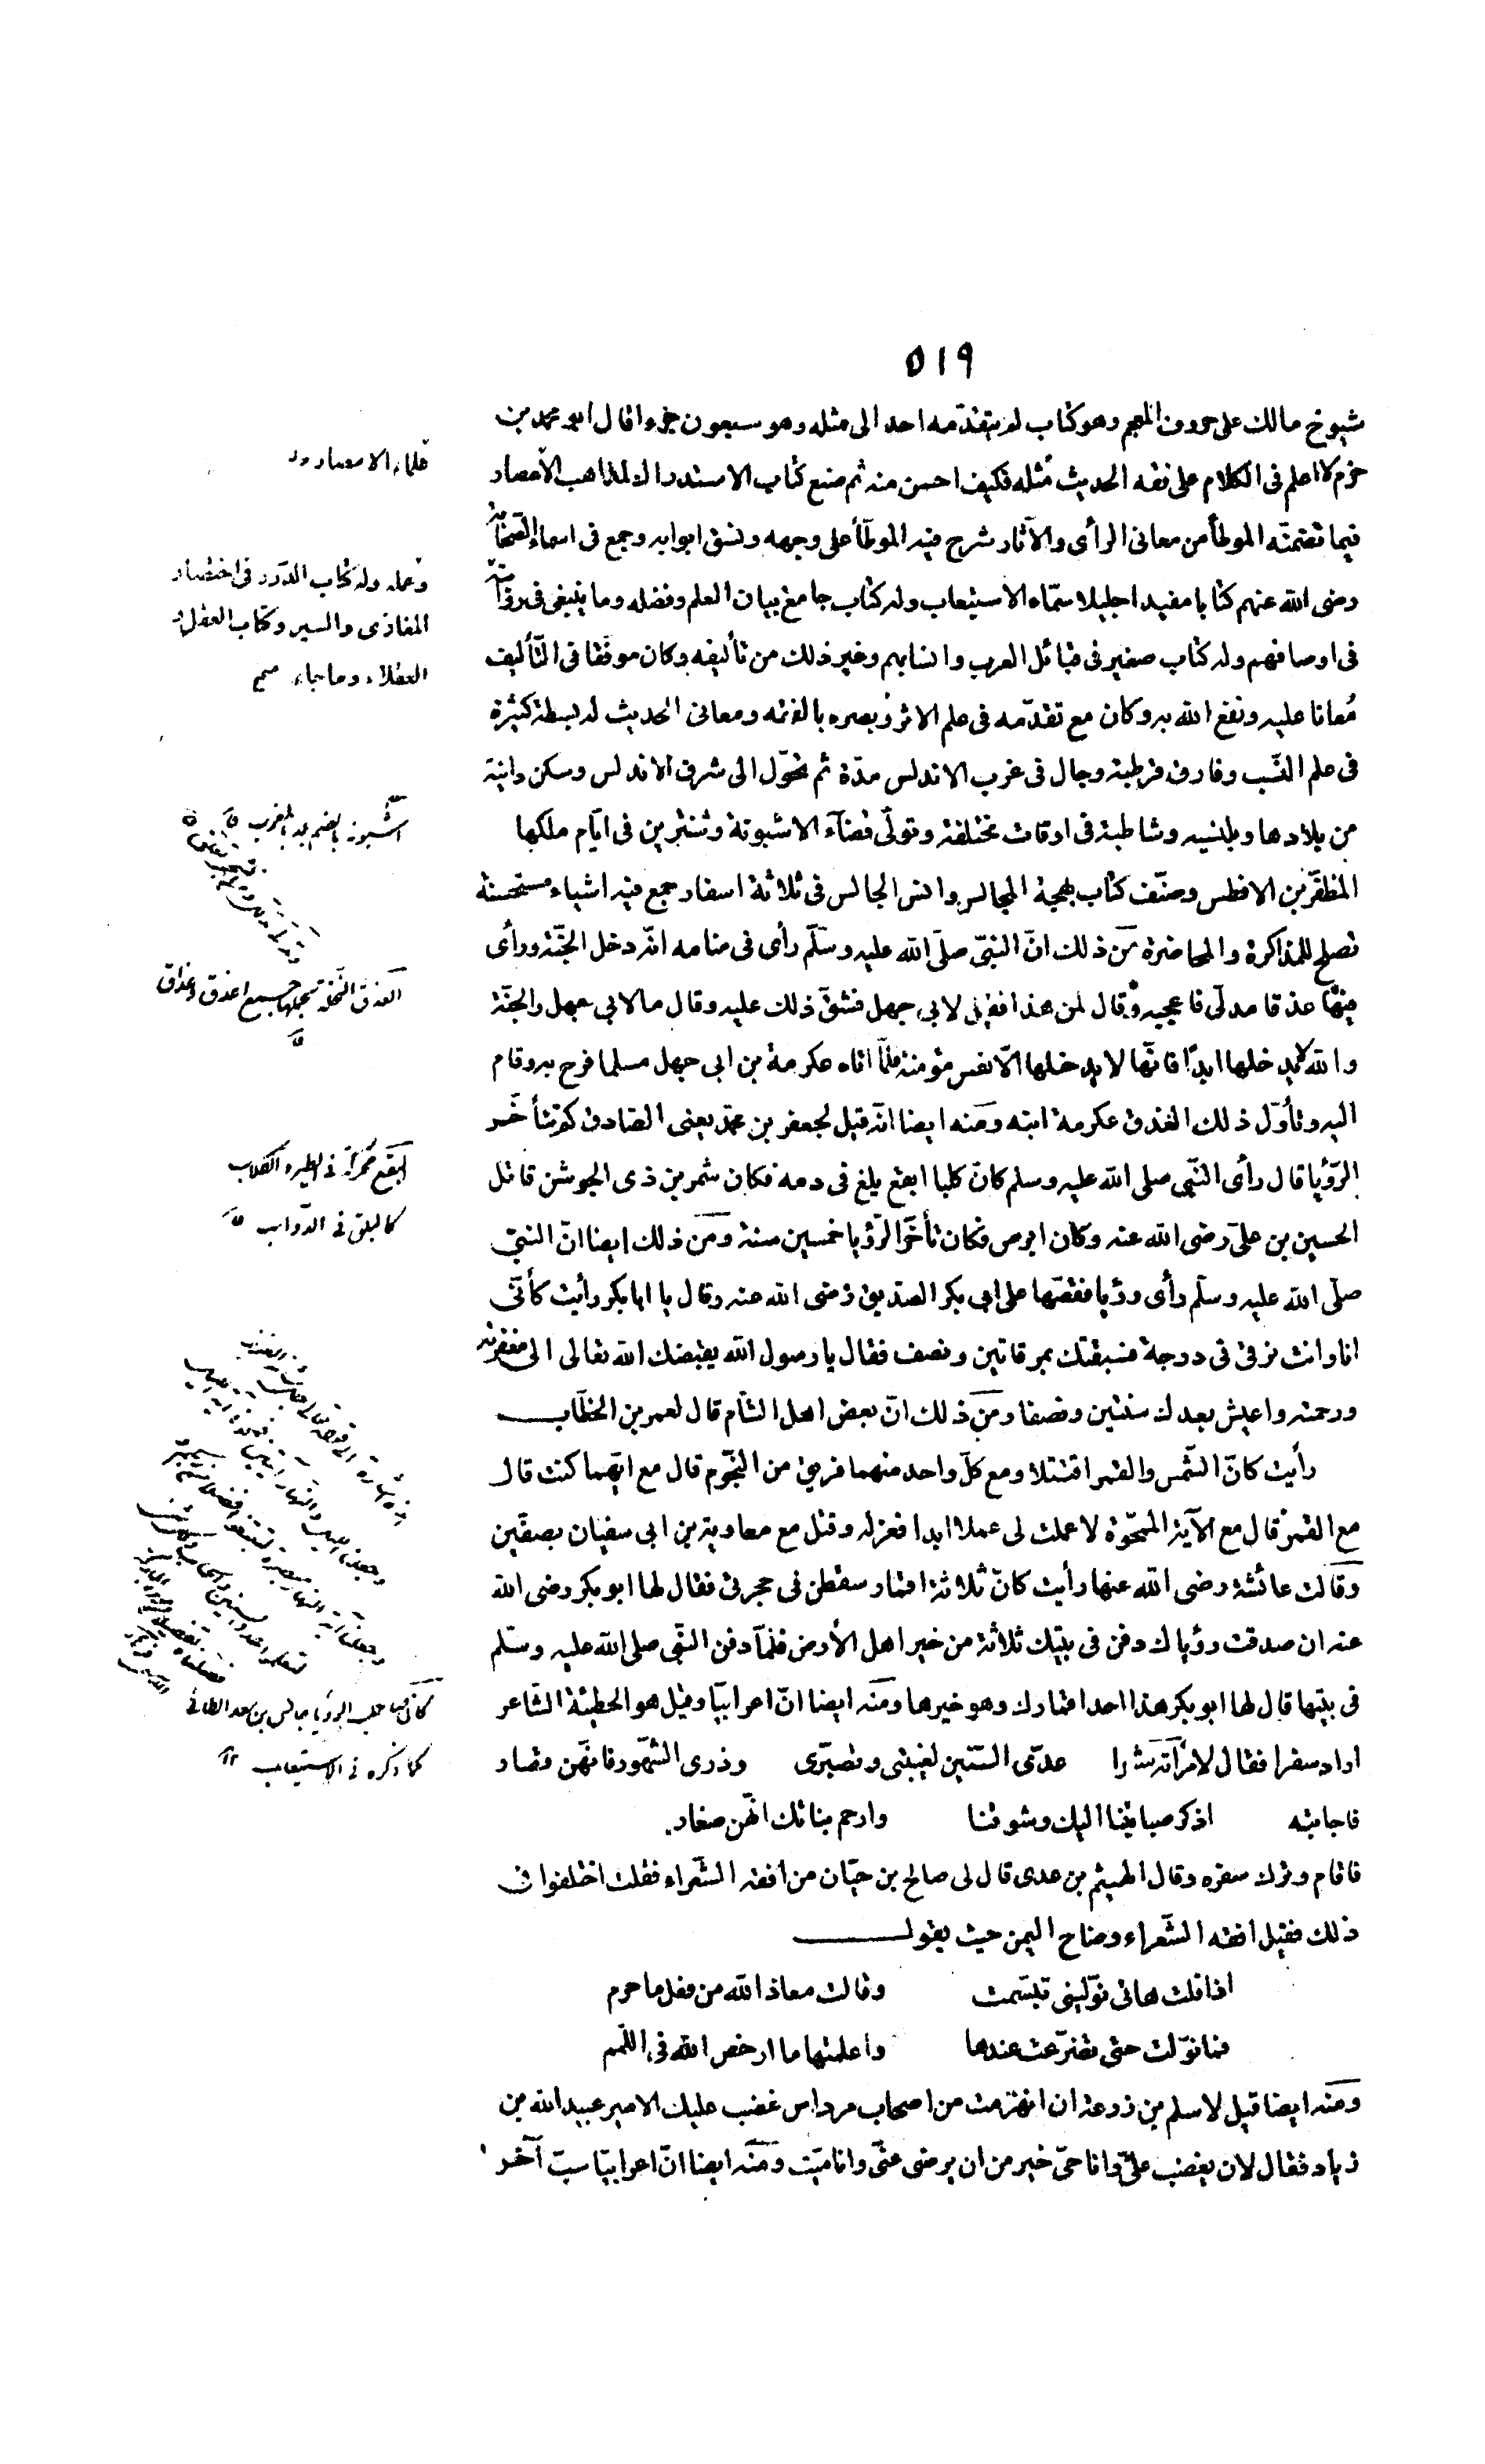 ٥١٩
شيوخ مالك على حروف المعجم وهو كتاب لم يتقدّمه احد الى مثله وهو سبعون جزوا قال ابو محمد بن
حزم لا اعلم فى الكلام على فقه الحديث مثله فكيف احسن منه ثم صنع كتاب الاستدراك لمذاهب الأمصار
فيما تضمنّه الموطأ من معانى الرأى والآثار شرح فيه الموطّأ على وجهه ونسق ابوابه وجمع فى اسماء الصّحابة
رضى الله عنهم كتابا مفيدا جليلا سمّاه الاستيعاب وله كتاب جامع بيان العلم وفضله وما ينبغى فى روايته
فى اوصافهم وله كتاب صغير فى قبائل العرب وانسابهم وغير ذلك من تأليفه وكان موفّقا فى التّأليف
مُعانا عليه ونفع الله به وكان مع تقدّمه فى علم الاثر وبصره بالفقه ومعانى الحديث له بسطة كثيرة
فى علم النّسب وفارق قرطبة وجال فى غرب الاندلس مدّة ثم تحوّل الى شرق الاندلس وسكن دانية
من بلادها وبلنسيه وشاطبة فى اوقات مختلفة وتولّى قضآء الاشبونة وشنترين فى ايّام ملكها
المظفّر بن الافطس وصنّف كتاب بهجة المجالس وانس الجالس فى ثلاثة اسفار جمع فيه اشياء مستحسنة
تصلح للمذاكرة والمحاضرة من ذلك انّ النبىّ صلّى الله عليه وسلّم رأى فى منامه انّه دخل الجنّة ورأى
فيها عذقا مدلّى فاعجبه وقال لمن هذا فقيل لابى جهل فشقّ ذلك عليه وقال ما لابى جهل والجنّة
والله لا يدخلها ابدًا فانّها لا يدخلها الّا نفس مؤمنة فلمّا اتاه عكرمة بن ابى جهل مسلما فرح به وقام
اليه وتأوّل ذلك العذق عكرمة ابنه ومنه ايضا انّه قيل لجعفر بن محمّد يعنى الصّادق كم تتأخّر
الرّؤيا قال رأى النّبى صلى الله عليه وسلم كانّ كلبا ابقع يلغ فى دمه فكان شمر بن ذى الجوشن قاتل
الحسين بن علىّ رضى الله عنه وكان ابرص فكان تأخّر الرّؤيا خمسين سنة ومن ذلك ايضا انّ النبىّ
صلّى الله عليه وسلّم رأى رؤيا فقصّها على ابى بكر الصدّيق رضى الله عنه وقال يا ابا بكر رأيت كأنّى
انا وانت نرقى فى درجة فسبقتك بمرقاتين ونصف فقال يا رسول الله يقبضك الله تعالى الى مغفرته
ورحمته واعيش بعدك سنتين ونصفا ومن ذلك انّ بعض اهل الشّام قال لعمر بن الخطّاب
رأيت كانّ الشّمس والقمر اقتتلا ومع كلّ واحد منهما فريق من النّجوم قال مع ايّهما كنت قال
مع القمر قال مع الآية الممحوّة لا عملت لى عملا ابدا فعزله وقتل مع معاوية بن ابى سفيان بصفّين
وقالت عائشة رضى الله عنها رأيت كانّ ثلاثة اقمار سقطن فى حجرتى فقال لها ابو بكر رضى الله
عنه ان صدقت رؤياك دفن فى بيتك ثلاثة من خير اهل الأرض فلمّا دفن النّبى صلى الله عليه وسلّم
فى بيتها قال لها ابو بكر هذا احد اقمارك وهو خيرها ومنه ايضا انّ اعرابيّا وقيل هو الحطيئة الشّاعر
اراد سفرا فقال لامرأته شعرا عدّى السّنين لغيبتى وتصبّرى وذرى الشّهور فانّهنّ قصار
فاجابته اذكر صبابتنا اليك وشوقنا وارحم بناتك انّهنّ صغار
فاقام وترك سفره وقال الهيثم بن عدى قال لى صالح بن حيّان من افقه الشّعراء فقلت اختلفوا فى
ذلك فقيل افقه الشّعراء وضاح اليمن حيث يقول
اذا قلت هاتى نوّلينى تبسّمت وقالت معاذ الله من فعل ما حرم
فما نوّلت حتى تضرّعت عندها واعلمتها ما ارخص الله فى اللّمم
ومنه ايضا قيل لاسلم بن زرعة ان انهزمت من اصحاب مرداس غضب عليك الامير عبيد الله بن
زياد فقال لان يغضب علىّ وانا حىّ خير من ان يرضى عنّى وانا ميّت ومنه ايضا انّ اعرابيّا سبّ آخر
علماء الامصار
وحمله وله كتاب الدّرر فى اختصار
المغازى والسير وكتاب العقل و
العقلاء وما جاء
اشبونة بالضم بلد بالمغرب
العذق النّخلة بحملها جمع اعذق وعذاق
البقع محرّكة فى الطير والكلاب
كالبلق فى الدّواب
كان صاحب الرؤيا حابس بن سعد الطائى
كما ذكره فى الاستيعاب